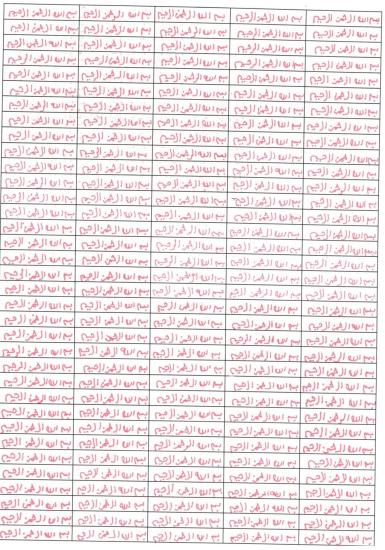 بسم الله الرحمن الرحيم بسم الله الرحمن الرحيم بسم الله الرحمن الرحيم بسم الله الرحمن الرحيم بسم الله الرحمن الرحيم
بسم الله الرحمن الرحيم بسم الله الرحمن الرحيم بسم الله الرحمن الرحيم بسم الله الرحمن الرحيم بسم الله الرحمن الرحيم
بسم الله الرحمن الرحيم بسم الله الرحمن الرحيم بسم الله الرحمن الرحيم بسم الله الرحمن الرحيم بسم الله الرحمن الرحيم
بسم الله الرحمن الرحيم بسم الله الرحمن الرحيم بسم الله الرحمن الرحيم بسم الله الرحمن الرحيم بسم الله الرحمن الرحيم
بسم الله الرحمن الرحيم بسم الله الرحمن الرحيم بسم الله الرحمن الرحيم بسم الله الرحمن الرحيم بسم الله الرحمن الرحيم
بسم الله الرحمن الرحيم بسم الله الرحمن الرحيم بسم الله الرحمن الرحيم بسم الله الرحمن الرحيم بسم الله الرحمن الرحيم
بسم الله الرحمن الرحيم بسم الله الرحمن الرحيم بسم الله الرحمن الرحيم بسم الله الرحمن الرحيم بسم الله الرحمن الرحيم
بسم الله الرحمن الرحيم بسم الله الرحمن الرحيم بسم الله الرحمن الرحيم بسم الله الرحمن الرحيم بسم الله الرحمن الرحيم
بسم الله الرحمن الرحيم بسم الله الرحمن الرحيم بسم الله الرحمن الرحيم بسم الله الرحمن الرحيم بسم الله الرحمن الرحيم
بسم الله الرحمن الرحيم بسم الله الرحمن الرحيم بسم الله الرحمن الرحيم بسم الله الرحمن الرحيم بسم الله الرحمن الرحيم
بسم الله الرحمن الرحيم بسم الله الرحمن الرحيم بسم الله الرحمن الرحيم بسم الله الرحمن الرحيم بسم الله الرحمن الرحيم
بسم الله الرحمن الرحيم بسم الله الرحمن الرحيم بسم الله الرحمن الرحيم بسم الله الرحمن الرحيم بسم الله الرحمن الرحيم
بسم الله الرحمن الرحيم بسم الله الرحمن الرحيم بسم الله الرحمن الرحيم بسم الله الرحمن الرحيم بسم الله الرحمن الرحيم
بسم الله الرحمن الرحيم بسم الله الرحمن الرحيم بسم الله الرحمن الرحيم بسم الله الرحمن الرحيم بسم الله الرحمن الرحيم
بسم الله الرحمن الرحيم بسم الله الرحمن الرحيم بسم الله الرحمن الرحيم بسم الله الرحمن الرحيم بسم الله الرحمن الرحيم
بسم الله الرحمن الرحيم بسم الله الرحمن الرحيم بسم الله الرحمن الرحيم بسم الله الرحمن الرحيم بسم الله الرحمن الرحيم
بسم الله الرحمن الرحيم بسم الله الرحمن الرحيم بسم الله الرحمن الرحيم بسم الله الرحمن الرحيم بسم الله الرحمن الرحيم
بسم الله الرحمن الرحيم بسم الله الرحمن الرحيم بسم الله الرحمن الرحيم بسم الله الرحمن الرحيم بسم الله الرحمن الرحيم
بسم الله الرحمن الرحيم بسم الله الرحمن الرحيم بسم الله الرحمن الرحيم بسم الله الرحمن الرحيم بسم الله الرحمن الرحيم
بسم الله الرحمن الرحيم بسم الله الرحمن الرحيم بسم الله الرحمن الرحيم بسم الله الرحمن الرحيم بسم الله الرحمن الرحيم
بسم الله الرحمن الرحيم بسم الله الرحمن الرحيم بسم الله الرحمن الرحيم بسم الله الرحمن الرحيم بسم الله الرحمن الرحيم
بسم الله الرحمن الرحيم بسم الله الرحمن الرحيم بسم الله الرحمن الرحيم بسم الله الرحمن الرحيم بسم الله الرحمن الرحيم
بسم الله الرحمن الرحيم بسم الله الرحمن الرحيم بسم الله الرحمن الرحيم بسم الله الرحمن الرحيم بسم الله الرحمن الرحيم
بسم الله الرحمن الرحيم بسم الله الرحمن الرحيم بسم الله الرحمن الرحيم بسم الله الرحمن الرحيم بسم الله الرحمن الرحيم
بسم الله الرحمن الرحيم بسم الله الرحمن الرحيم بسم الله الرحمن الرحيم بسم الله الرحمن الرحيم بسم الله الرحمن الرحيم
بسم الله الرحمن الرحيم بسم الله الرحمن الرحيم بسم الله الرحمن الرحيم بسم الله الرحمن الرحيم بسم الله الرحمن الرحيم
بسم الله الرحمن الرحيم بسم الله الرحمن الرحيم بسم الله الرحمن الرحيم بسم الله الرحمن الرحيم بسم الله الرحمن الرحيم
بسم الله الرحمن الرحيم بسم الله الرحمن الرحيم بسم الله الرحمن الرحيم بسم الله الرحمن الرحيم بسم الله الرحمن الرحيم
بسم الله الرحمن الرحيم بسم الله الرحمن الرحيم بسم الله الرحمن الرحيم بسم الله الرحمن الرحيم بسم الله الرحمن الرحيم
بسم الله الرحمن الرحيم بسم الله الرحمن الرحيم بسم الله الرحمن الرحيم بسم الله الرحمن الرحيم بسم الله الرحمن الرحيم
بسم الله الرحمن الرحيم بسم الله الرحمن الرحيم بسم الله الرحمن الرحيم بسم الله الرحمن الرحيم بسم الله الرحمن الرحيم
بسم الله الرحمن الرحيم بسم الله الرحمن الرحيم بسم الله الرحمن الرحيم بسم الله الرحمن الرحيم بسم الله الرحمن الرحيم
بسم الله الرحمن الرحيم بسم الله الرحمن الرحيم بسم الله الرحمن الرحيم بسم الله الرحمن الرحيم بسم الله الرحمن الرحيم
بسم الله الرحمن الرحيم بسم الله الرحمن الرحيم بسم الله الرحمن الرحيم بسم الله الرحمن الرحيم بسم الله الرحمن الرحيم
بسم الله الرحمن الرحيم بسم الله الرحمن الرحيم بسم الله الرحمن الرحيم بسم الله الرحمن الرحيم بسم الله الرحمن الرحيم